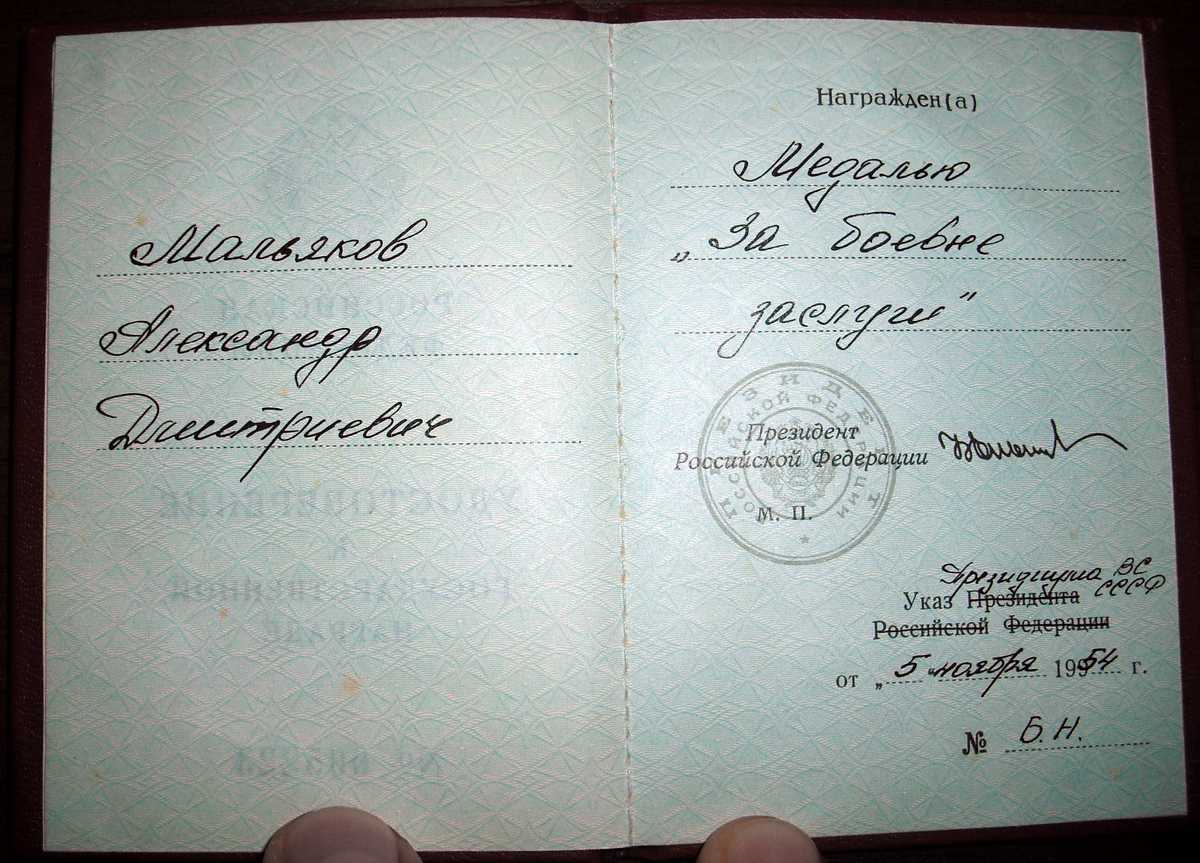 Мальяков
Александр
Дмитриевич
Награжден(а)
Медалью
„За боевые
заслуги"
ПРЕЗИДЕНТ
РОССИЙСКОЙ ФЕДЕРАЦИИ
Президент
Российской Федерации
М. П.
Президиума ВС
СССР
Указ Президента
Российской Федерации
от „5" ноября 1954 г.
№ Б.Н.